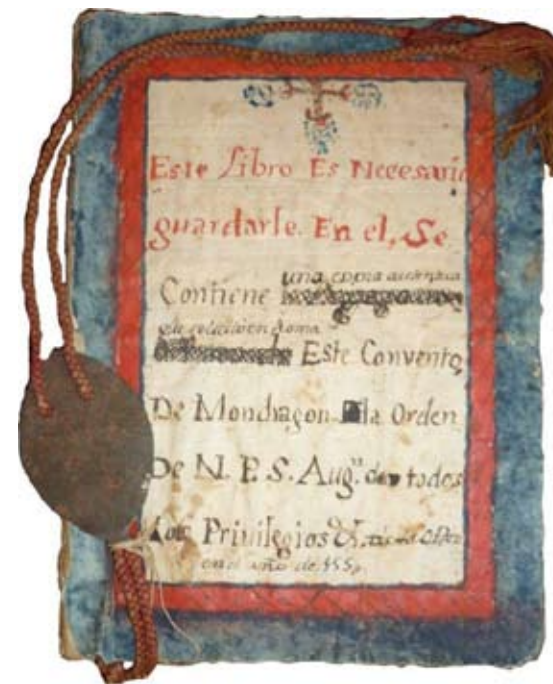 Este Libro Es Necesario
guardarle. En el, Se
una copia autentica
Contiene
que solicitó en Roma
Este Convento,
De Mondragon la Orden
De N. P. S. Aug.ⁿ con todos
Los Privilegios
en el año de